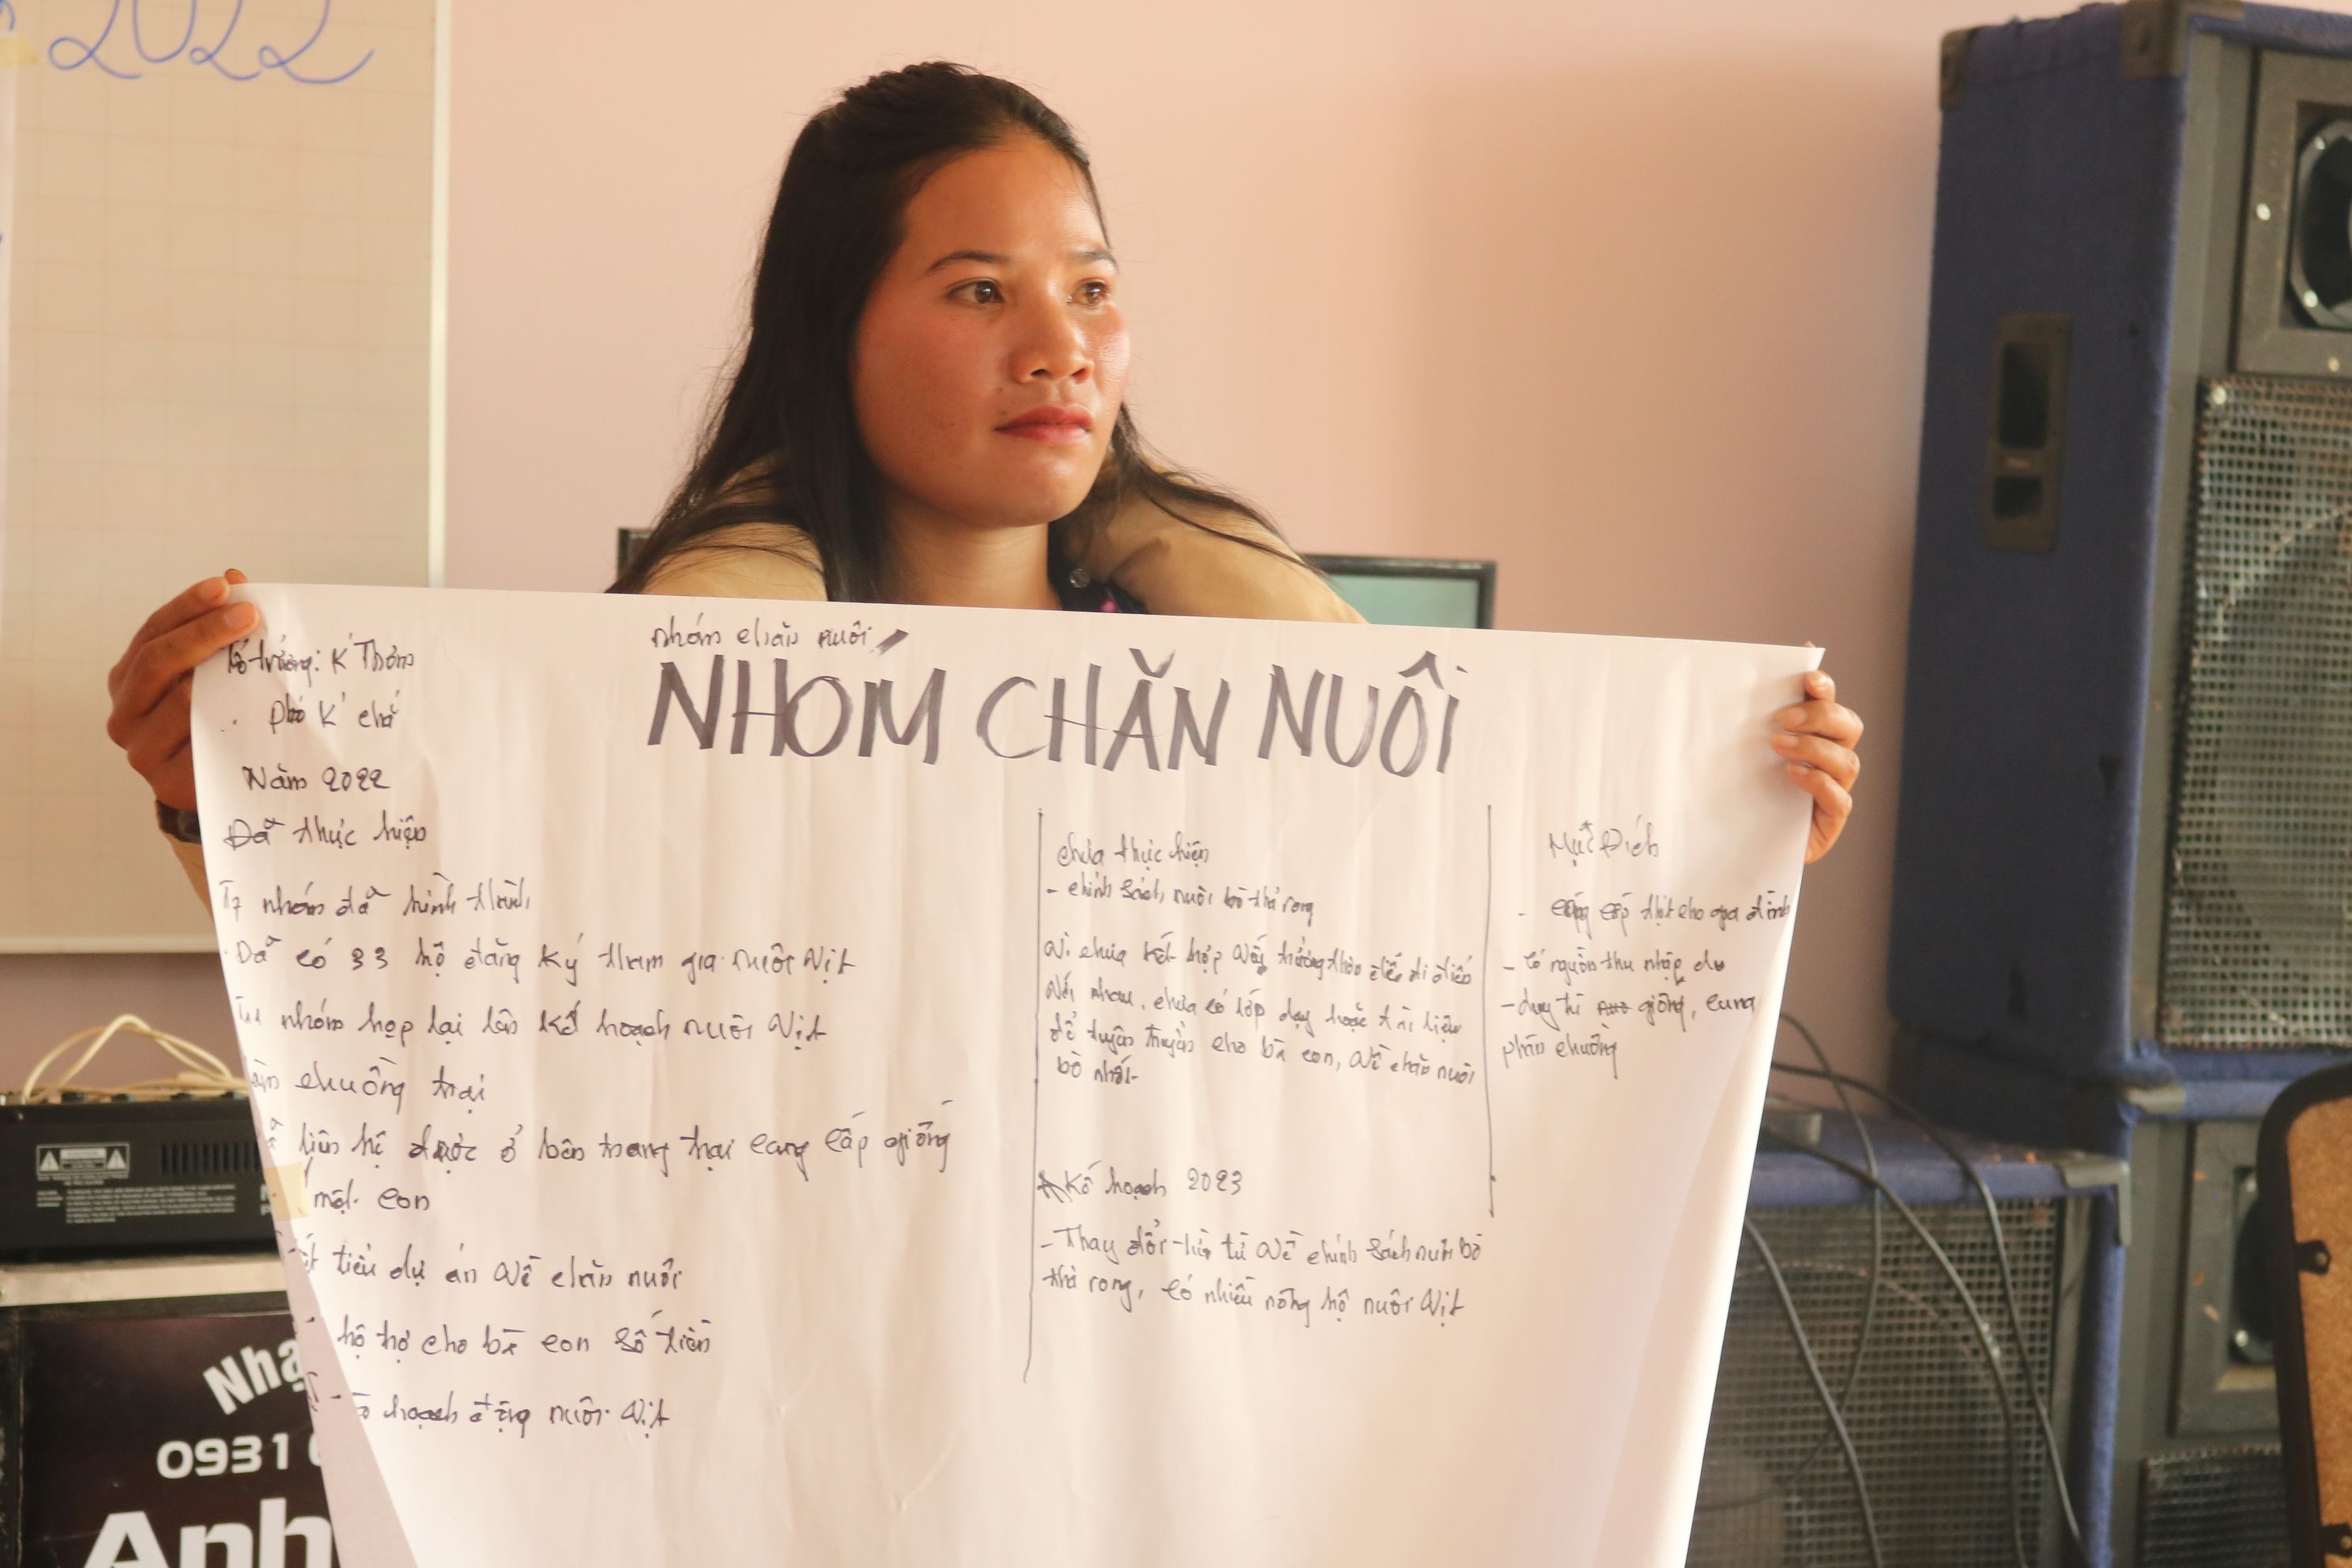 2022
nhóm chăn nuôi
NHÓM CHĂN NUÔI
Tổ trưởng: K' Thơm
phó K' chả
Năm 2022
Đã thực hiện
nhóm đã hình thành
Đã có 33 hộ đăng ký tham gia nuôi vịt
nhóm họp lại lên kế hoạch nuôi vịt
chuồng trại
liên hệ được ở bên trang trại cung cấp giống
một con
tiểu dự án về chăn nuôi
hộ trợ cho bà con số tiền
hoạch nuôi vịt
chưa thực hiện
- chính sách nuôi bò thả rong
vì chưa kết hợp với trưởng thôn để đi
với nhau, chưa có lớp dạy hoặc tài liệu
để tuyên truyền cho bà con, về chăn nuôi
bò nhốt
Kế hoạch 2023
- Thay đổi từ về chính sách nuôi bò
thả rong, có nhiều nông hộ nuôi vịt
Mục Đích
- cấp thịt cho gia đình
- có nguồn thu nhập
- duy trì giống, cung
phân chuồng
Nhạ
0931
Anh